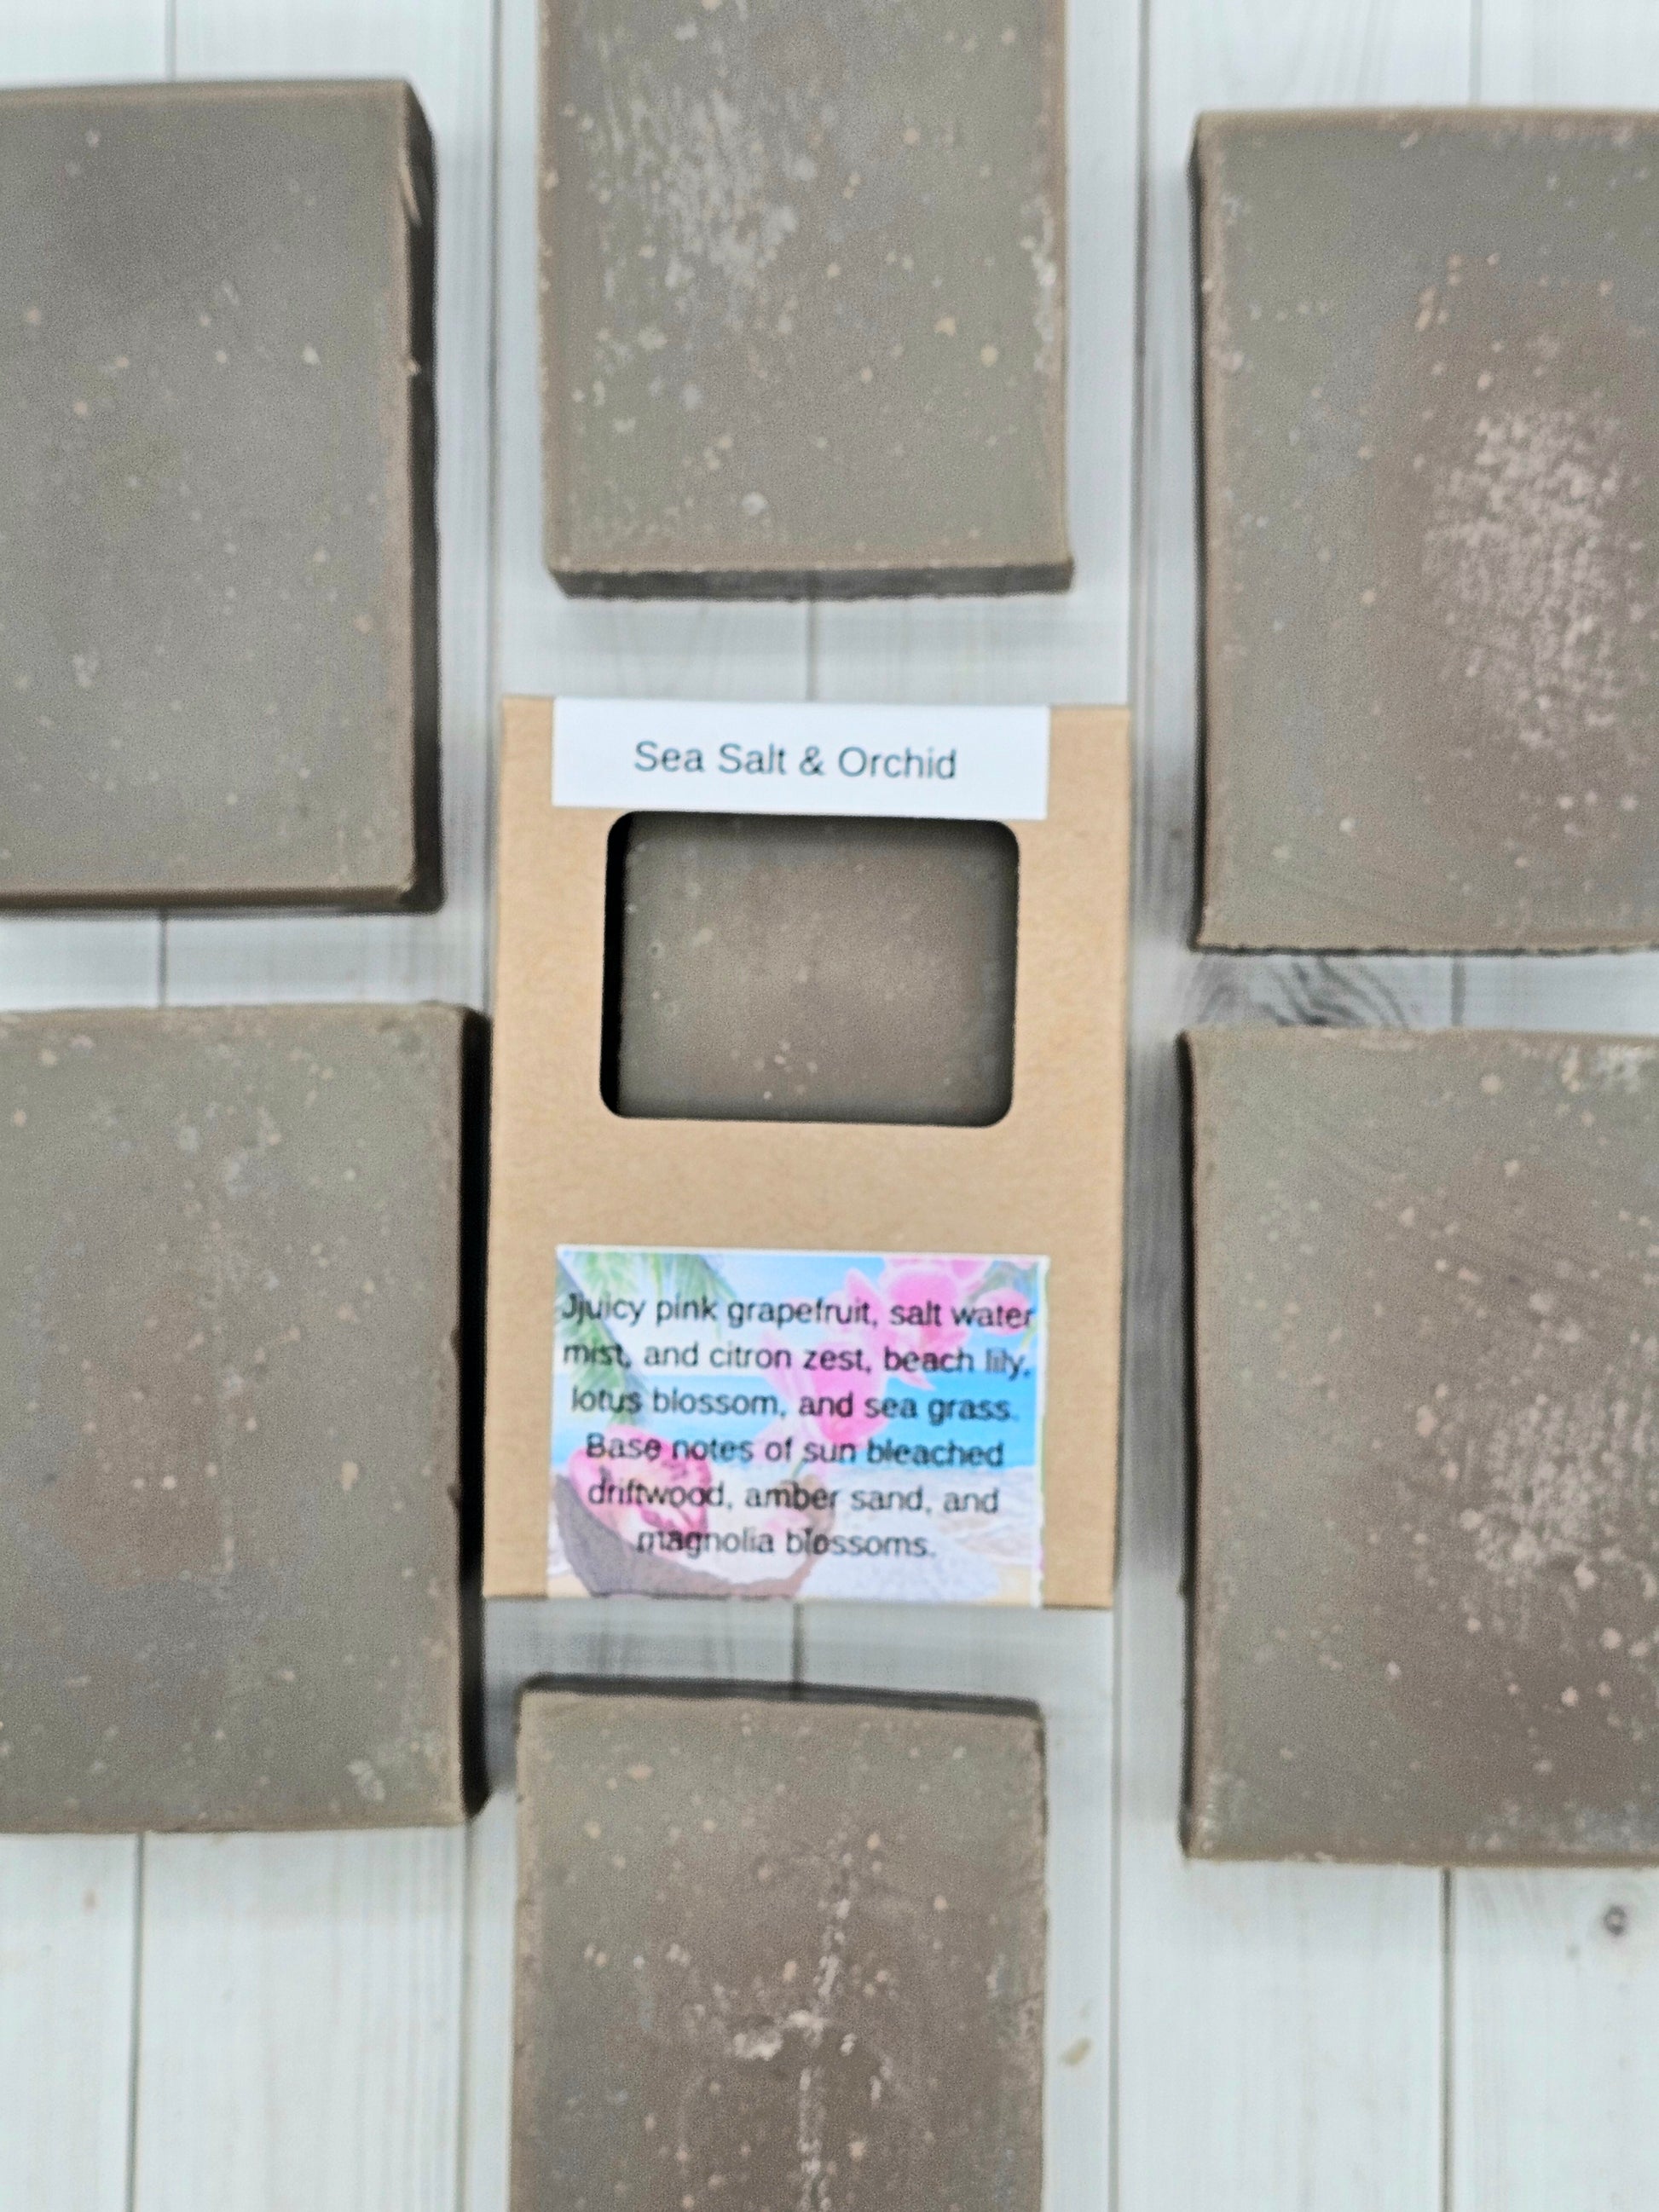 Sea Salt & Orchid
Jjuicy pink grapefruit, salt water
mist, and citron zest, beach lily,
lotus blossom, and sea grass.
Base notes of sun bleached
driftwood, amber sand, and
magnolia blossoms.